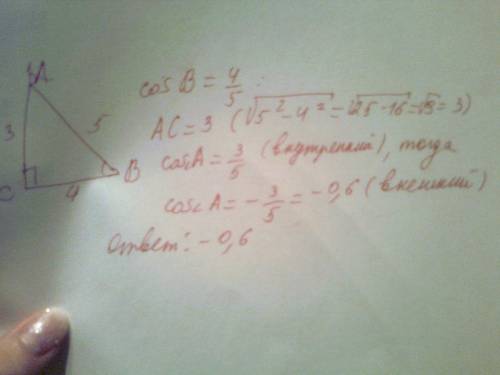 A
3
5
C
4
B
cos B = 4/5 :
AC = 3 (√5² - 4² = √25 - 16 = √9 = 3)
cos A = 3/5 (внутренний), тогда
cos A = - 3/5 = -0,6 (внешний)
Ответ: -0,6